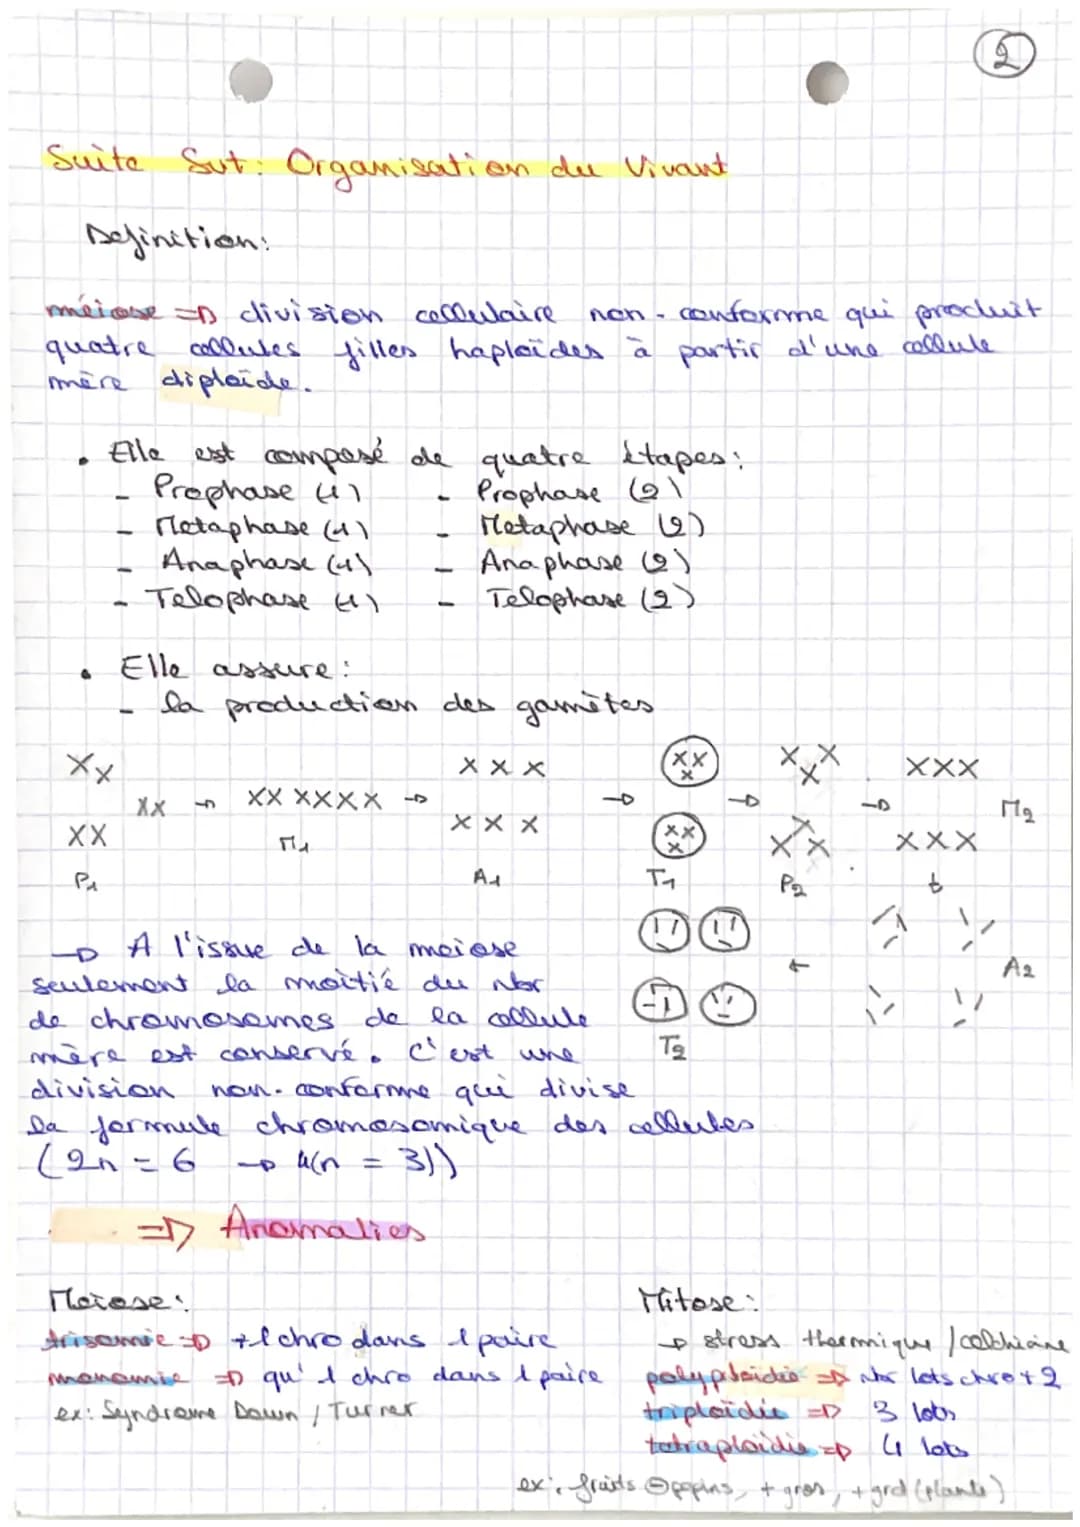 2
Suite Svt: Organisation du Vivant
Definition:
méiose => division cellulaire non-conforme qui produit
quatre cellules filles haploïdes à partir d'une cellule
mère diploïde.
• Elle est composé de quatre étapes:
- Prophase (1) - Prophase (2)
- Metaphase (1) - Metaphase (2)
- Anaphase (1) - Anaphase (2)
- Telophase (1) - Telophase (2)
• Elle assure:
- la production des gamètes
P1 M1 A1 T1 P2 M2
A2
T2
→ A l'issue de la meiose
seulement la moitié du Nbr
de chromosomes de la cellule
mère est conservé. C'est une
division non-conforme qui divise
la formule chromosomique des cellules
(2n = 6 → 4(n = 3))
=> Anomalies
Meiose:
trisomie => +1 chro dans 1 paire
monomie => qu'1 chro dans 1 paire
ex: Syndrome Down / Turner
Mitose:
→ stress thermique / colchicine
polyploïdie => Nbr lots chro + 2
triploïdie => 3 lots
tetraploïdie => 4 lots
ex: fruits ⊖ pepins, + gros, + grd (plante)